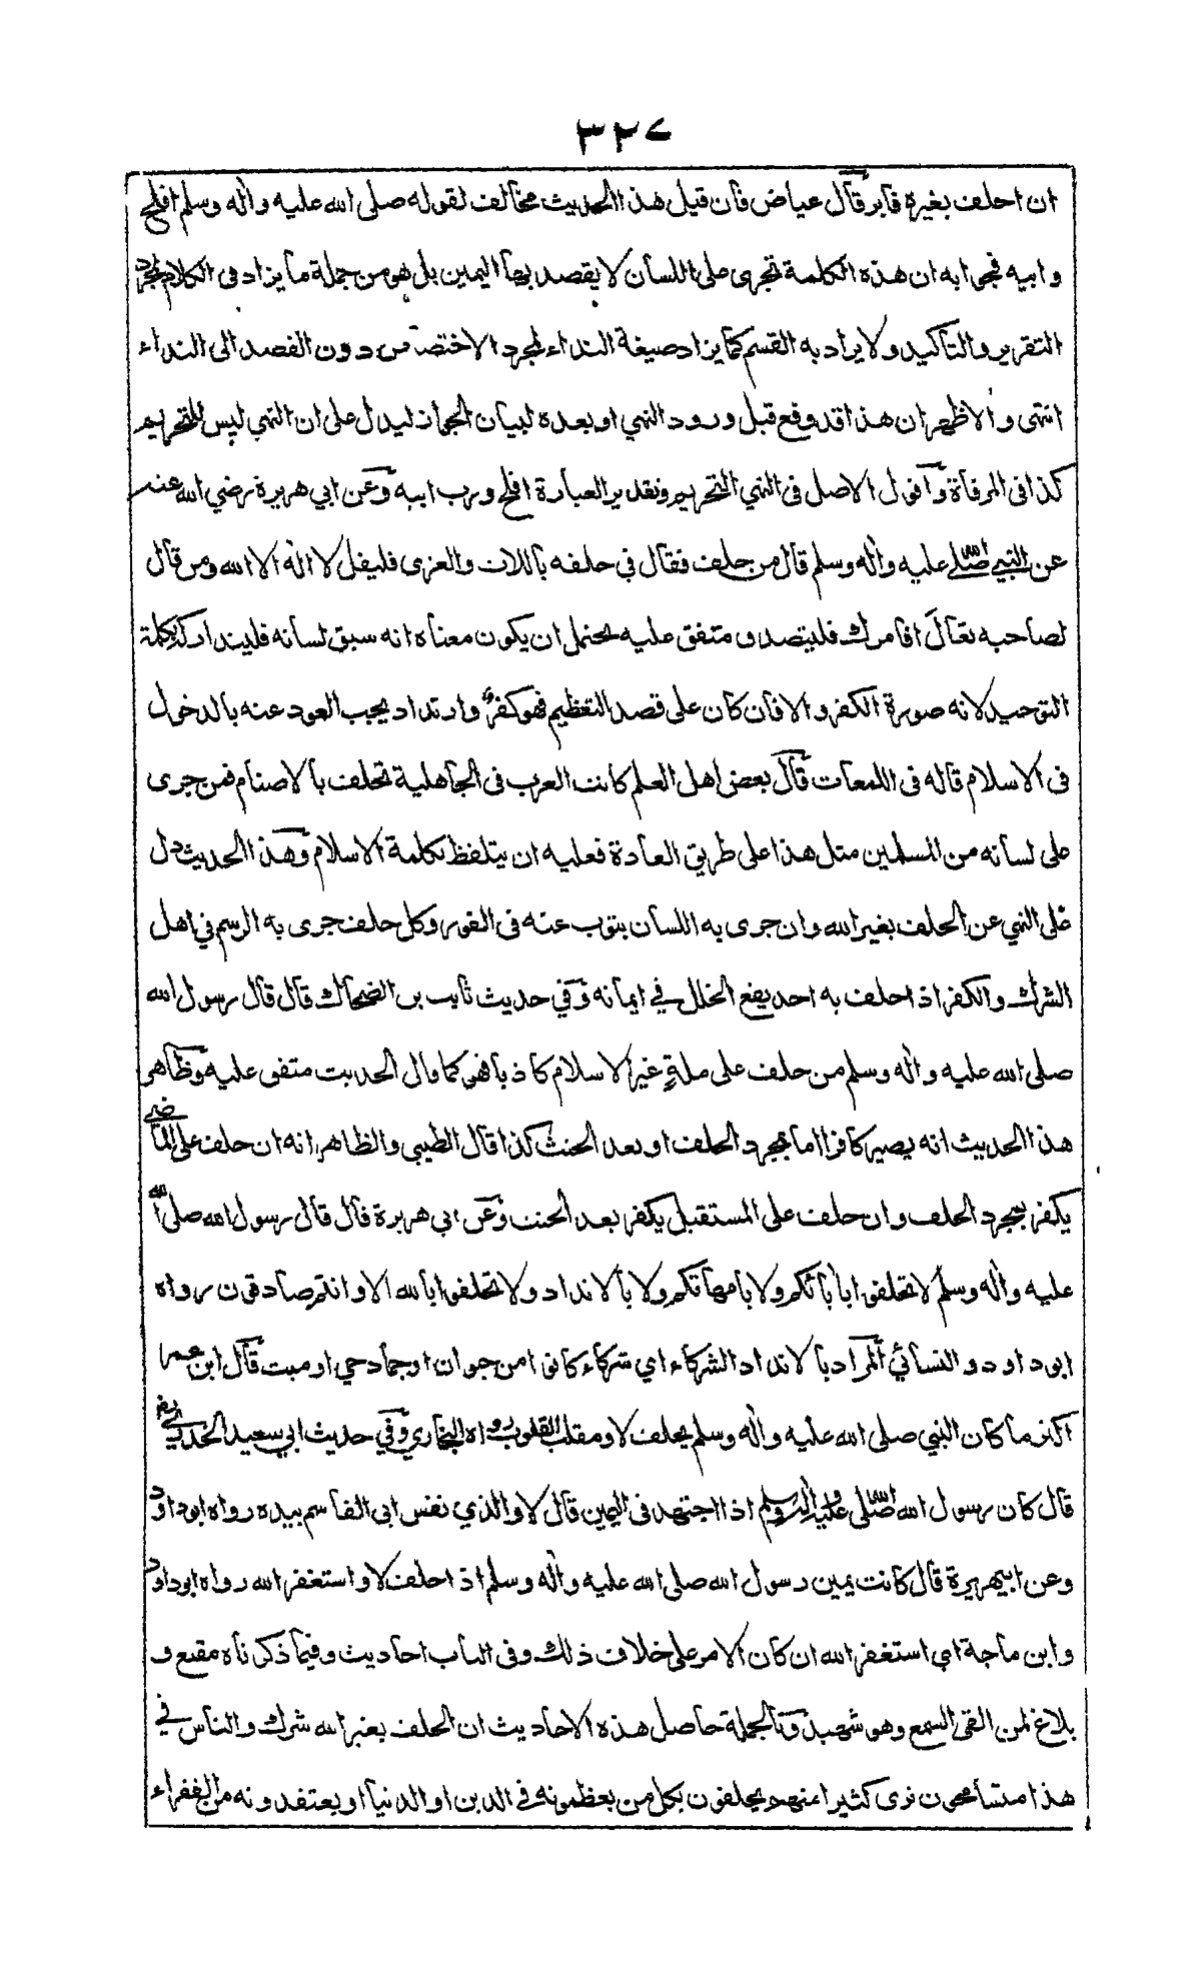 ٣٢٧
ان احلف بغيره فابر قال عياض فان قيل هذا الحديث مخالف لقوله صلى الله عليه واله وسلم افلح
وابيه فجوابه ان هذه الكلمة تجرى على اللسان لا يقصد بها اليمين بل هو من جملة ما يزاد فى الكلام لمجرد
التقرير والتاكيد ولا يراد به القسم كما يزاد صيغة النداء لمجرد الاختصاص دون القصد الى النداء
انتهى والاظهر ان هذا قد وقع قبل ورود النهي او بعده لبيان الجواز ليدل على ان النهي ليس للتحريم
كذا فى المرقاة وأقول الاصل فى النهي التحريم وتقدير العبارة افلح ورب ابيه وعن ابي هريرة رضي الله عنه
عن النبي صلى الله عليه واله وسلم قال من حلف فقال في حلفه باللات والعزى فليقل لا اله الا الله ومن قال
لصاحبه تعال اقامرك فليتصدق متفق عليه يحتمل ان يكون معناه انه سبق لسانه فليتدارك بكلمة
التوحيد لانه صورة الكفر والا فان كان على قصد التعظيم فهو كفر وارتداد يجب العود عنه بالدخول
فى الاسلام قاله فى اللمعات قال بعض اهل العلم كانت العرب فى الجاهلية تحلف بالاصنام فمن جرى
على لسانه من المسلمين مثل هذا على طريق العادة فعليه ان يتلفظ بكلمة الاسلام وهذا الحديث دل
على النهي عن الحلف بغير الله وان جرى به اللسان يتوب عنه فى الفور وكل حلف جرى به الرسم في اهل
الشرك والكفر اذا حلف به احد يقع الخلل في ايمانه وفي حديث ثابت بن الضحاك قال قال رسول الله
صلى الله عليه واله وسلم من حلف على ملة غير الاسلام كاذبا فهو كما قال الحديث متفق عليه وظاهر
هذا الحديث انه يصير كافرا اما بمجرد الحلف او بعد الحنث كذا قال الطيبي والظاهر انه ان حلف على الماضي
يكفر بمجرد الحلف وان حلف على المستقبل يكفر بعد الحنث وعن ابي هريرة قال قال رسول الله صلى الله
عليه واله وسلم لا تحلفوا بابائكم ولا بامهاتكم ولا بالانداد ولا تحلفوا بالله الا وانتم صادقون رواه
ابو داود والنسائي المراد بالانداد الشركاء اي شركاء كانوا من حيوان او جماد حي او ميت قال ابن عمر
اكثر ما كان النبي صلى الله عليه واله وسلم يحلف لا ومقلب القلوب رواه البخاري وفي حديث ابي سعيد الخدري
قال كان رسول الله صلى الله عليه واله وسلم اذا اجتهد فى اليمين قال لا والذي نفس ابى القاسم بيده رواه ابو داود
وعن ابي هريرة قال كانت يمين رسول الله صلى الله عليه واله وسلم اذا حلف لا واستغفر الله رواه ابو داود
وابن ماجة اي استغفر الله ان كان الامر على خلاف ذلك وفى الباب احاديث وفيما ذكرناه مقنع و
بلاغ لمن القى السمع وهو شهيد وبالجملة حاصل هذه الاحاديث ان الحلف بغير الله شرك والناس في
هذا متسامحون نرى كثيرا منهم يحلفون بكل من يعظمونه في الدين او الدنيا او يعتقدونه من الفقراء